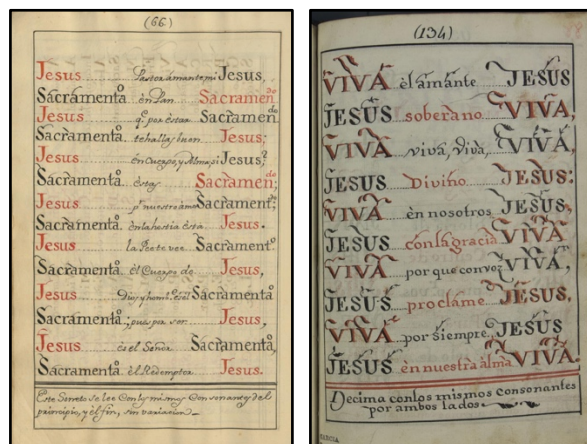 (66)
Jesus Pastor amante mi Jesus,
Sacramentº en Pan Sacramendo
Jesus q. por èstar Sacramen.do
Sacramentº te hallas buen Jesus;
Jesus en Cuerpo, y Alma Jesus,
Sacramentº èstas Sacramen.do;
Jesus Sacrament.º
Sacramentº en la hostia èsta Jesus.
Jesus la Feete vee Sacrament.º
Sacramentº èl Cuerpo de Jesus,
Jesus Dios y homb.e es el Sacramentº
Sacramentº; pues por ser Jesus,
Jesus es el Señor Sacramentº,
Sacramentº èl Redemptor Jesus.
Este Soneto se lee Con los mismos Consonantes del
principio, y èl fin, sin variacion.
(134)
VIVA èl amante JESUS
JESUS soberano VIVA,
VIVA viva, viva, VIVA,
JESUS Divino JESUS:
VIVA èn nosotros JESUS,
JESUS con la gracia VIVA
VIVA por que con voz VIVA,
JESUS proclame JESUS,
VIVA por siempre JESUS
JESUS èn nuestra àlma VIVA.
Decima con los mismos consonantes
por ambos lados